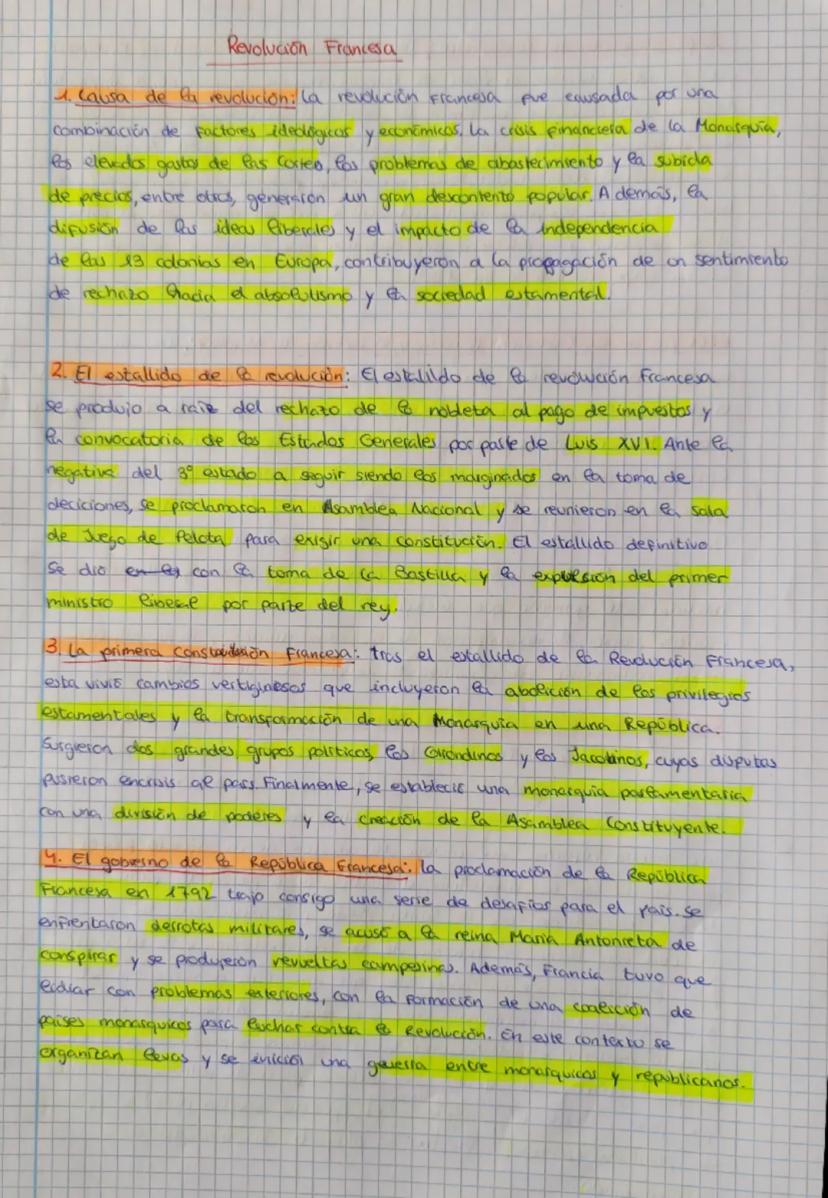 Revolución Francesa
1. Causa de la revolución: La revolución Francesa fue causada por una
combinación de factores ideológicos y económicos. La crisis financiera de la Monarquía,
los elevados gastos de las Cortes, los problemas de abastecimiento y la subida
de precios, entre otros, generaron un gran descontento popular. Además, la
difusión de las ideas liberales y el impacto de la independencia
de las 13 colonias en Europa, contribuyeron a la propagación de un sentimiento
de rechazo hacia el absolutismo y la sociedad estamental.
2. El estallido de la revolución: El estallido de la revolución Francesa
se produjo a raíz del rechazo de la nobleza al pago de impuestos y
la convocatoria de los Estados Generales por parte de Luis XVI. Ante la
negativa del 3º estado a seguir siendo los marginados en la toma de
deciciones, se proclamaron en Asamblea Nacional y se reunieron en la sala
de Juego de Pelota para exigir una constitución. El estallido definitivo
se dio con la toma de la Bastilla y la expulsión del primer
ministro liberal por parte del rey.
3. La primera Francesa: tras el estallido de la Revolución Francesa,
esta vivió cambios vertiginosos que incluyeron la abolición de los privilegios
estamentales y la transformación de una Monarquía en una República.
Surgieron dos grandes grupos políticos, los Girondinos y los Jacobinos, cuyas disputas
pusieron encrisis al país. Finalmente, se estableció una monarquía parlamentaria
con una división de poderes y la creación de la Asamblea Constituyente.
4. El gobierno de la República Francesa: la proclamación de la República
Francesa en 1792 trajo consigo una serie de desafíos para el país. se
enfrentaron derrotas militares, se acusó a la reina María Antonieta de
conspirar y se produjeron revueltas campesinas. Además, Francia tuvo que
lidiar con problemas exteriores, con la formación de una coalición de
países monárquicos para luchar contra la Revolución. En este contexto se
organizan levas y se inició una guerra entre monárquicos y republicanos.